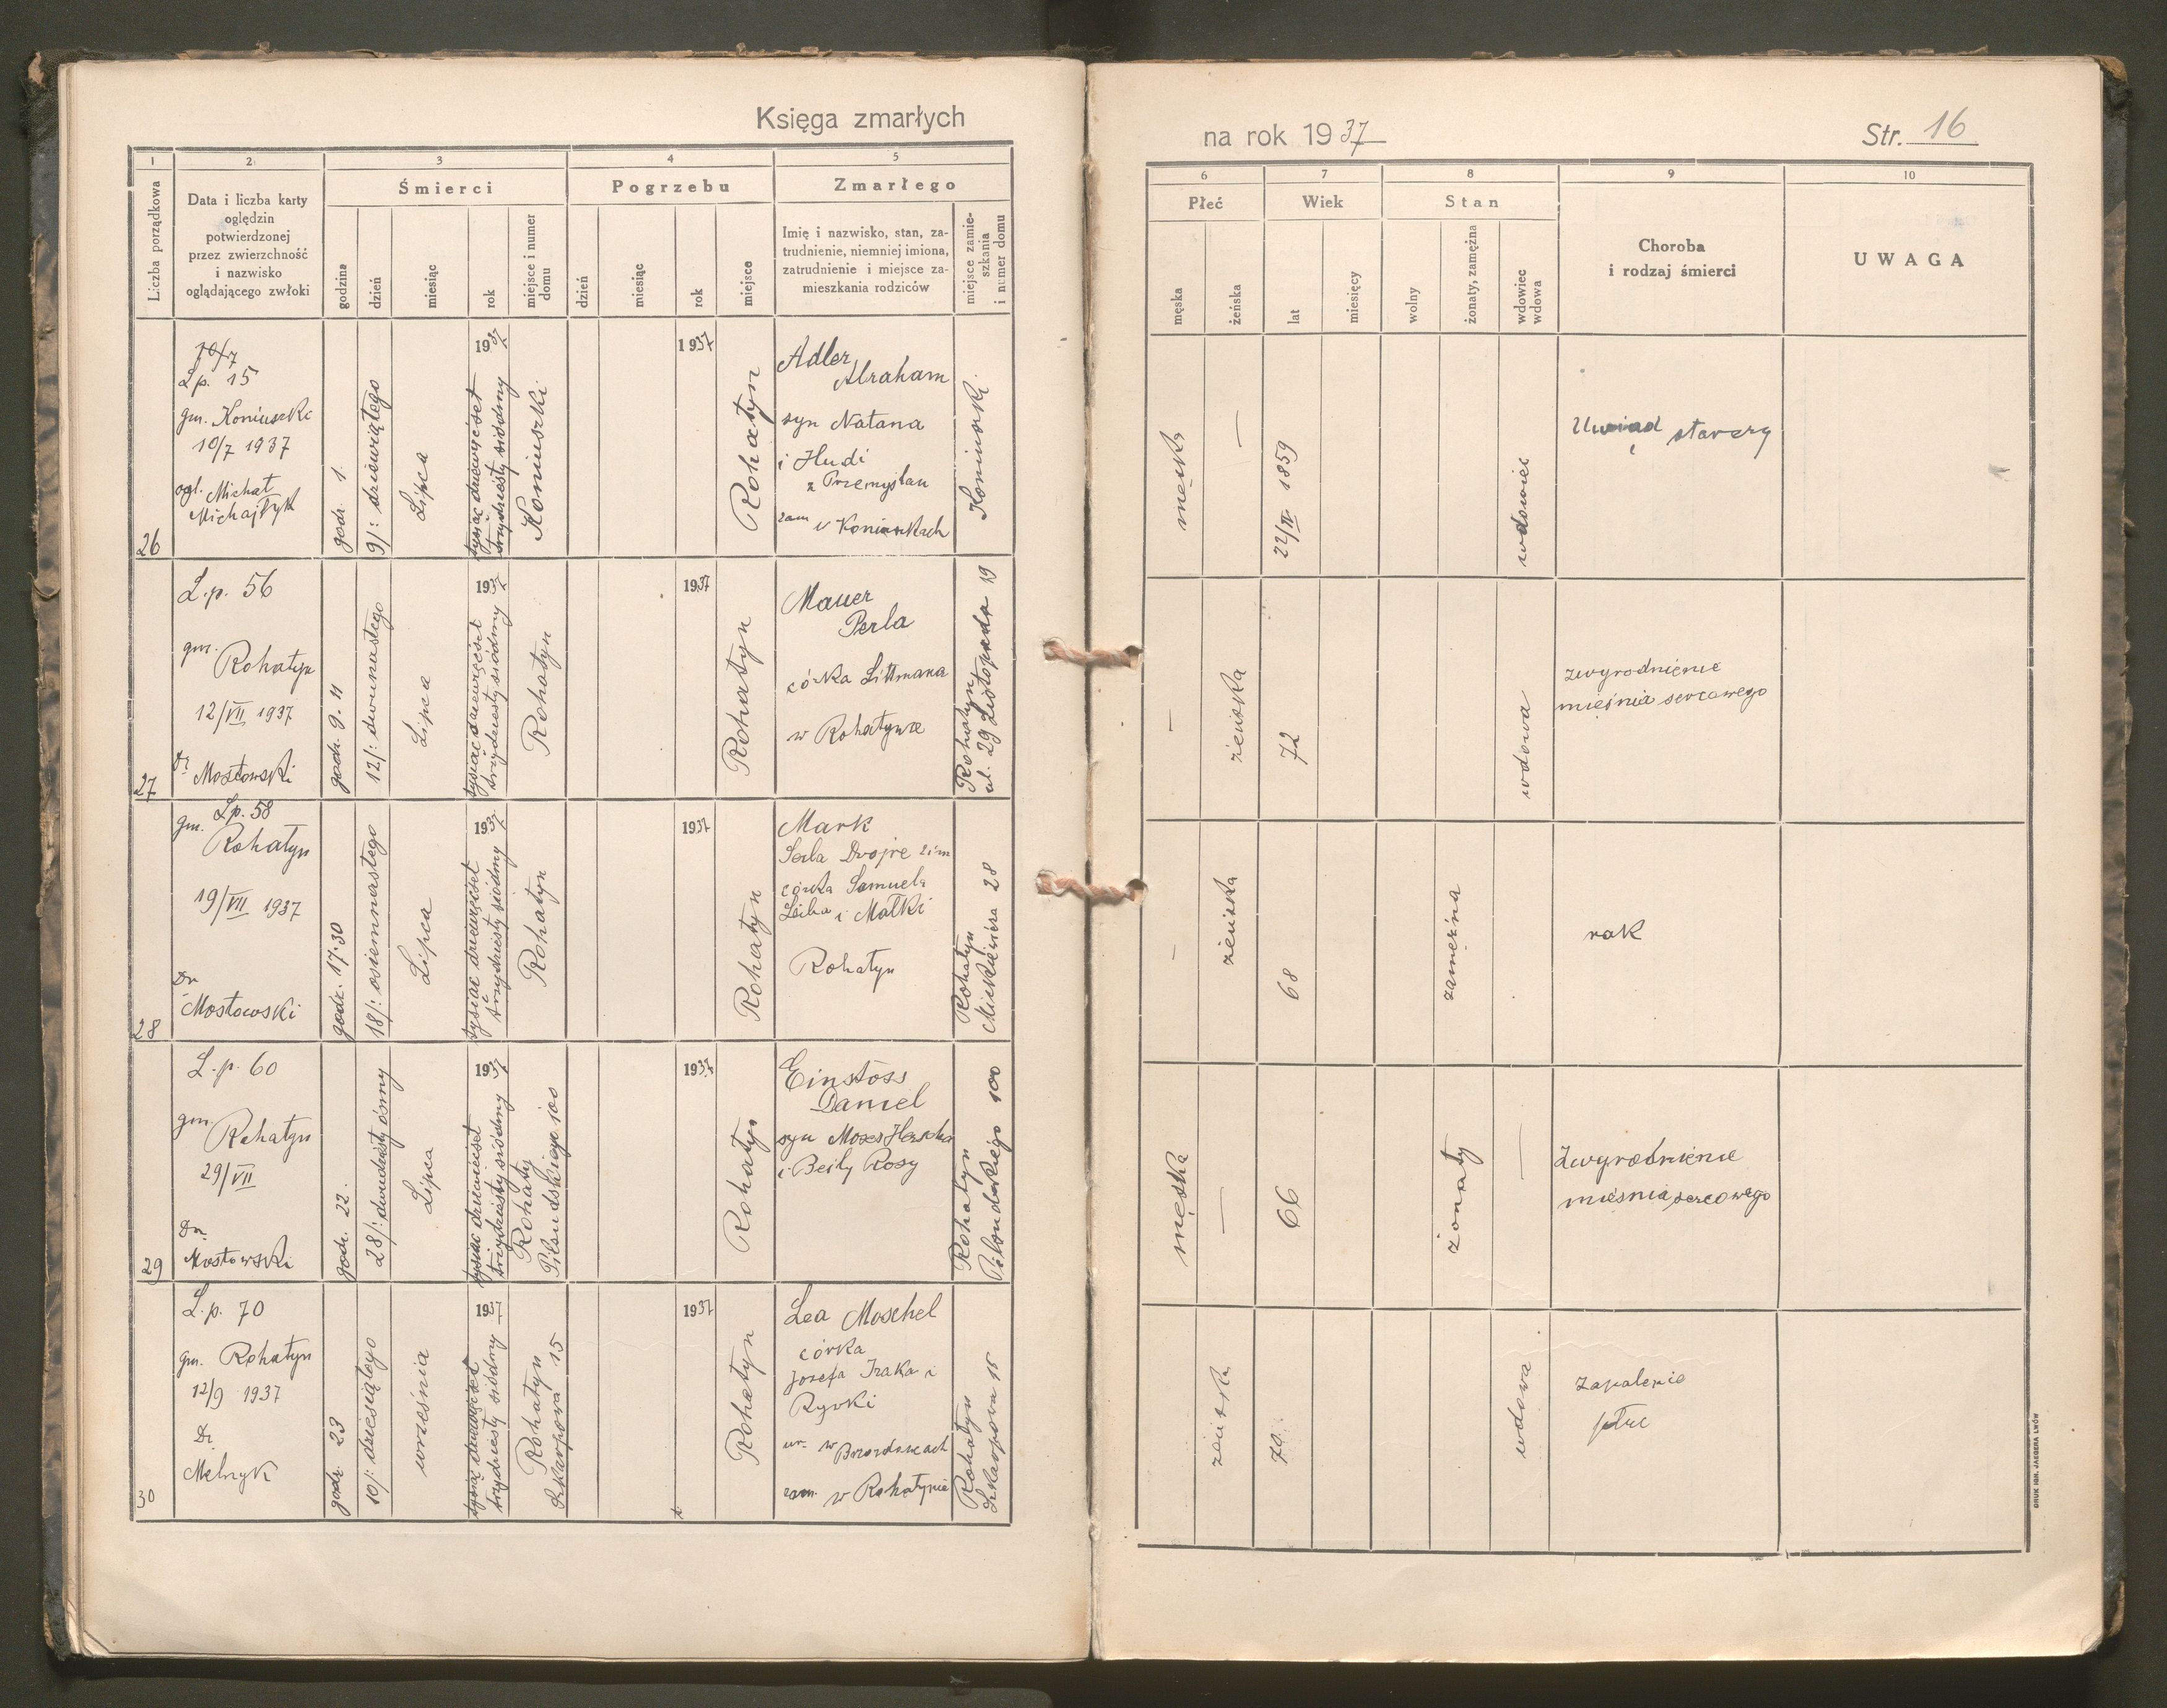 Księga zmarłych
na rok 1937
Str. 16
1
2
3
4
5
Liczba porządkowa
Data i liczba karty
oględzin
potwierdzonej
przez zwierzchność
i nazwisko
oglądającego zwłoki
Śmierci
godzina
dzień
miesiąc
rok
miejsce i numer
domu
Pogrzebu
dzień
miesiąc
rok
miejsce
Zmarłego
Imię i nazwisko, stan, za-
trudnienie, niemniej imiona,
zatrudnienie i miejsce za-
mieszkania rodziców
miejsce zamie-
szkania
i numer domu
6
7
8
9
10
Płeć
męska
żeńska
Wiek
lat
miesięcy
Stan
wolny
żonaty, zamężna
wdowiec
wdowa
Choroba
i rodzaj śmierci
UWAGA
26
10/7
Lp. 15
gm. Koniuszki
10/7 1937
ogl. Michał
Michajłyk
godz. 1.
9/: dziewiątego
Lipca
1937
tysiąc dziewięćset
trzydziesty siódmy
Koniuszki
1937
Rohatyn
Adler
Abraham
syn Natana
i Hudi
z Przemyślan
zam w Koniuszkach
Koniuszki
męska
—
22/II 1859
wdowiec
Uwiąd starczy
27
L.p. 56
gm.
Rohatyn
12/VII 1937
Dr
Mostowski
godz. 9.11
12/: dwunastego
Lipca
1937
tysiąc dziewięćset
trzydziesty siódmy
Rohatyn
1937
Rohatyn
Mauer
Perla
córka Littmana
w Rohatynie
Rohatyn
ul. 29 Listopada 19
—
żeńska
72
wdowa
zwyrodnienie
mięśnia sercowego
28
Lp. 58
gm. Rohatyn
19/VII 1937
Dr
Mostowski
godz. 17.30
18/: osiemnastego
Lipca
1937
tysiąc dziewięćset
trzydziesty siódmy
Rohatyn
1937
Rohatyn
Mark
Serla Dwojre
córka Samuela
Leiba i Małki
Rohatyn
Rohatyn
Mickiewicza 28
—
żeńska
68
zamężna
rak
29
L.p. 60
gm.
Rohatyn
29/VII
Dr.
Mostowski
godz. 22.
28/: dwudziesty ósmy
Lipca
1937
tysiąc dziewięćset
trzydziesty siódmy
Rohatyn
Piłsudskiego 100
1937
Rohatyn
Einstoss
Daniel
syn Moses Herscha
i Beily Rosy
Rohatyn
Piłsudskiego 100
męska
—
66
żonaty
—
Zwyrodnienie
mięśnia sercowego
30
L.p. 70
gm. Rohatyn
12/9 1937
Dr
Melnyk
godz. 23
10/: dziesiątego
września
1937
tysiąc dziewięćset
trzydziesty siódmy
Rohatyn
Szkarpowa 15
1937
Rohatyn
Lea Moschel
córka
Josefa Izaka i
Ryvki
ur. w Brzozdowcach
zam. w Rohatynie
Rohatyn
Szkarpowa 15
żeńska
70
wdowa
Zapalenie
płuc
DRUK IGN. JAEGERA LWÓW